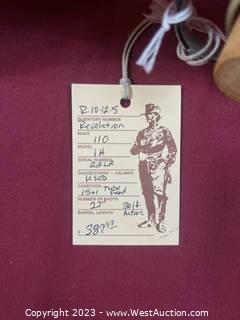 R-10-12-5
INVENTORY NUMBER
Revelation
MAKE
110
MODEL
1H
SERIAL NUMBER
22LR
GAUGE/CHOKE - CALIBER
USED
CONDITION
15+1 Tube Feed
NUMBER OF SHOTS
22" Bolt Action
BARREL LENGTH
$
Copyright © 2023 - WestAuction.com